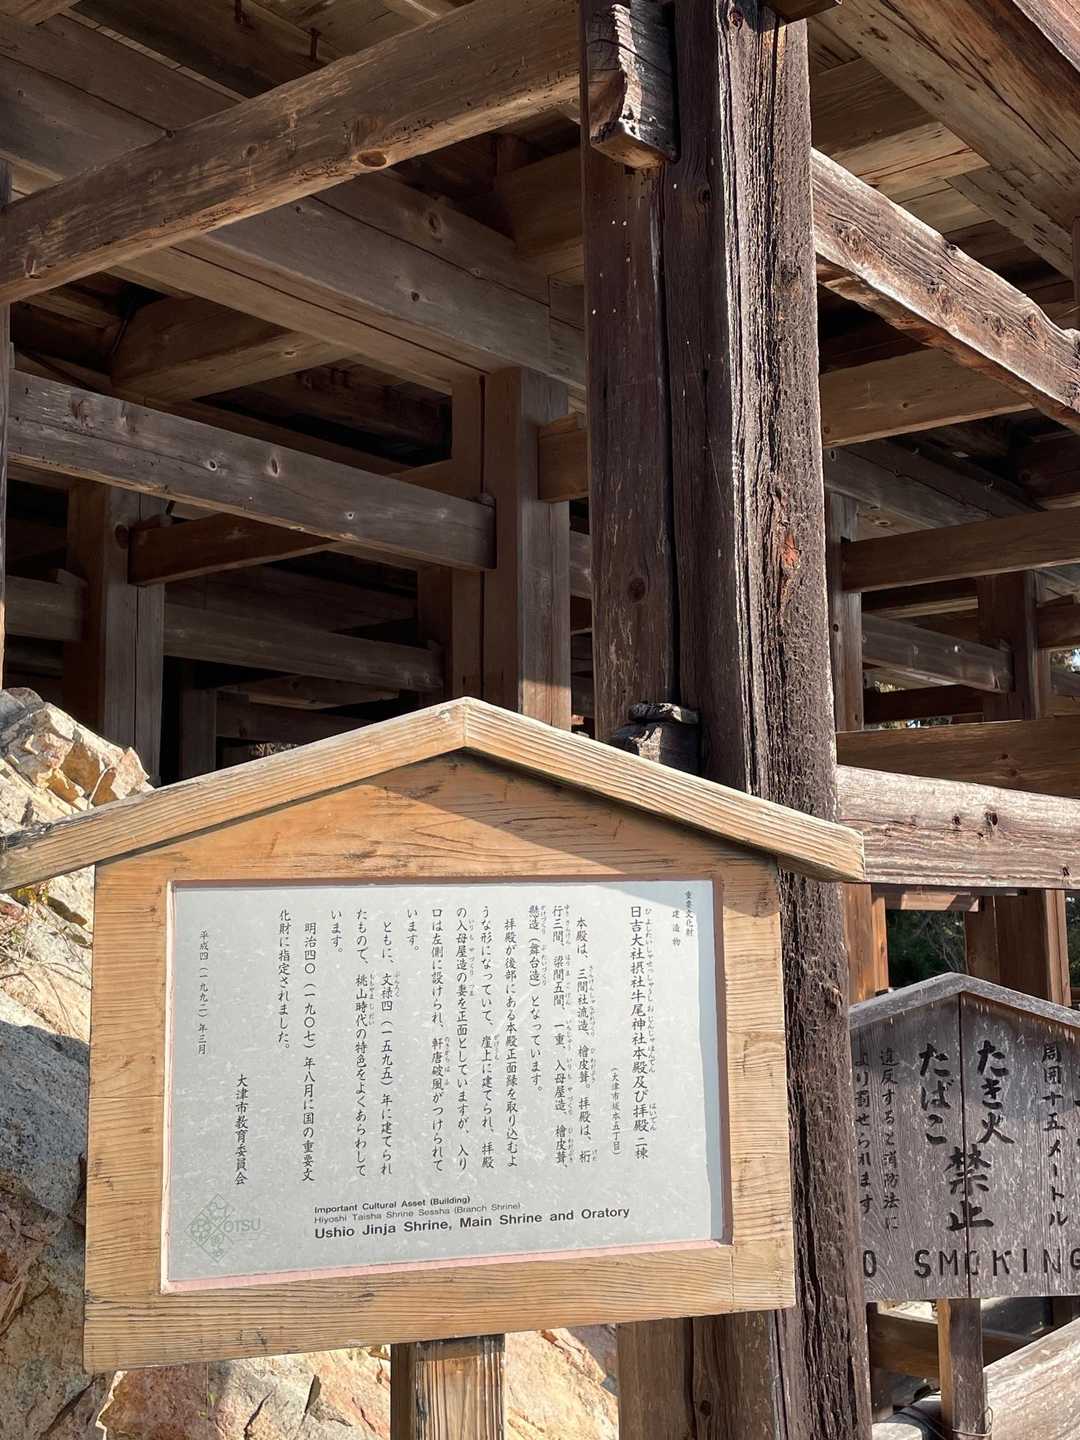 重要文化財
建造物
日吉大社摂社牛尾神社本殿及び拝殿 二棟
(大津市坂本五丁目)
本殿は、三間社流造、檜皮葺。拝殿は、桁
行三間、梁間五間、一重、入母屋造、檜皮葺
懸造(舞台造)となっています。
拝殿が後部にある本殿正面縁を取り込むよ
うな形になっていて、崖上に建てられ、拝殿
の入母屋造の妻を正面としていますが、入り
口は左側に設けられ、軒唐破風がつけられて
います。
ともに、文禄四(一五九五)年に建てられ
たもので、桃山時代の特色をよくあらわして
います。
明治四〇(一九〇七)年八月に国の重要文
化財に指定されました。
大津市教育委員会
平成四(一九九二)年三月
Important Cultural Asset (Building)
Hiyoshi Taisha Shrine Sessha (Branch Shrine)
Ushio Jinja Shrine, Main Shrine and Oratory
OTSU
周囲十五メートル
たき火
たばこ
禁止
違反すると消防法に
より罰せられます
SMOKING